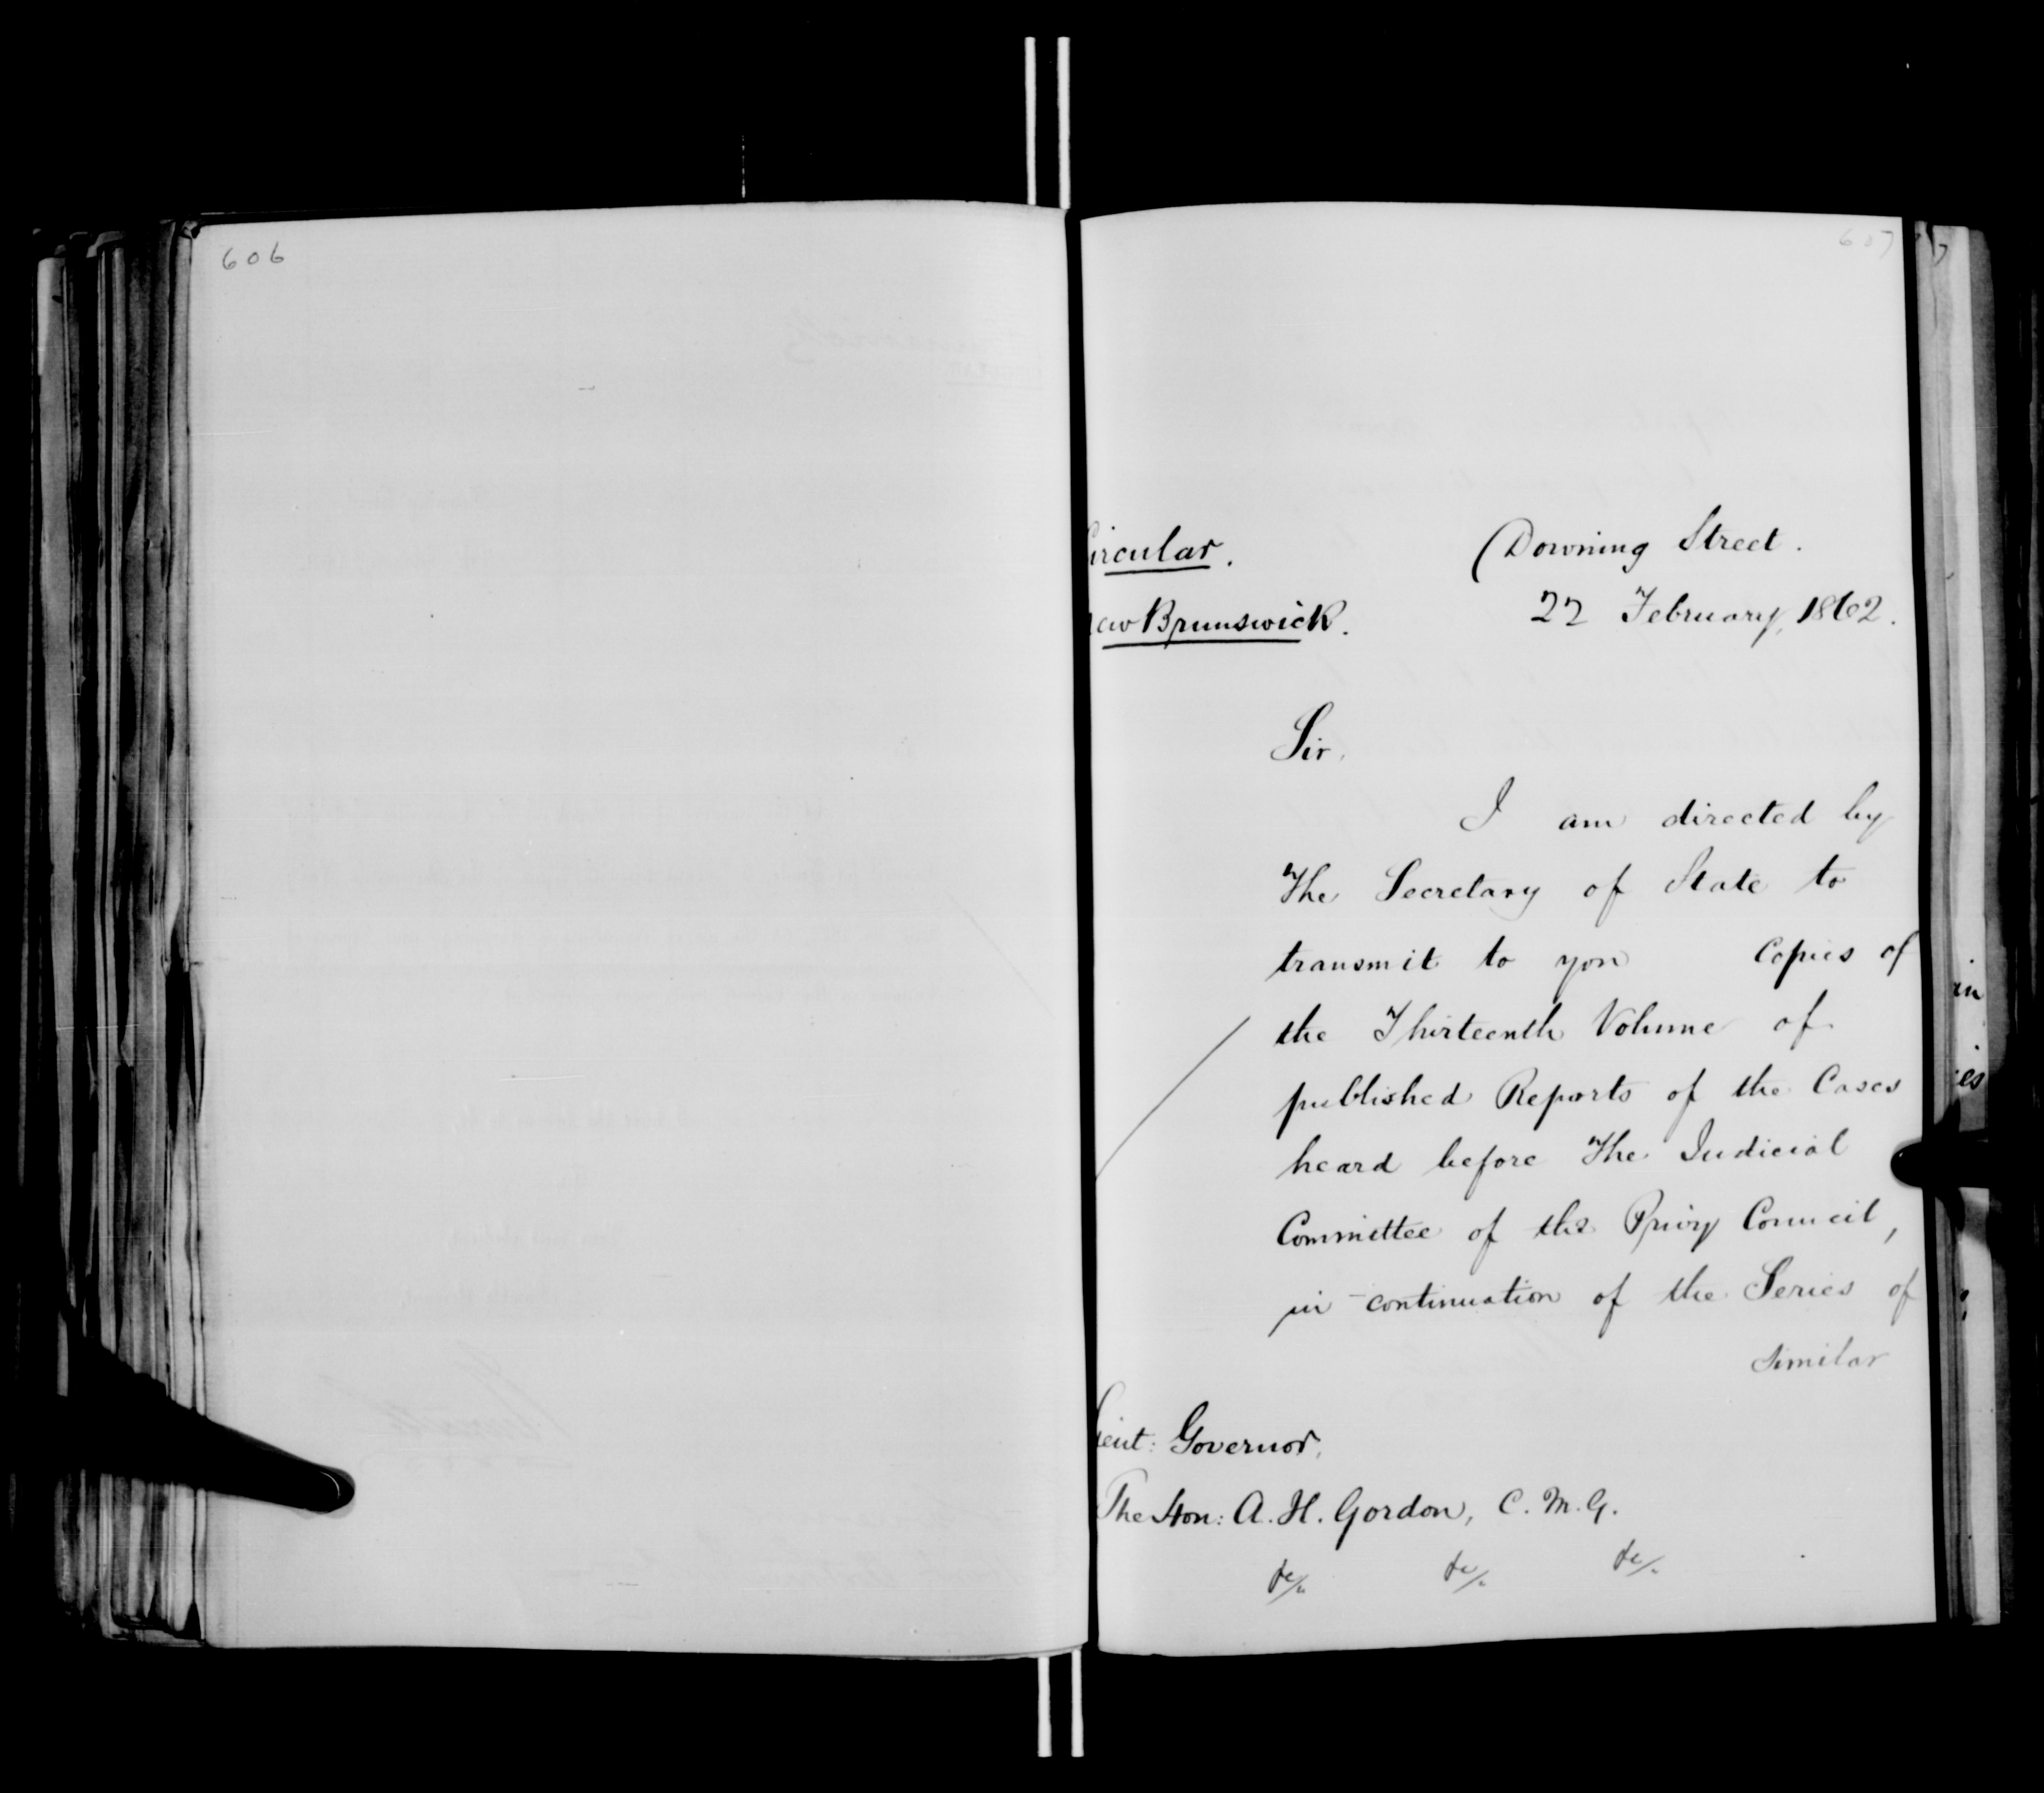 606
607
Circular.
Downing Street.
New Brunswick.
22 February, 1862.
Sir,
I am directed by
The Secretary of State to
transmit to you Copies of
the Thirteenth Volume of
published Reports of the Cases
heard before The Judicial
Committee of the Privy Council,
in continuation of the Series of
similar
Lieut: Governor,
The Hon: A. H. Gordon, C. M. G.
&c/. &c/. &c/.